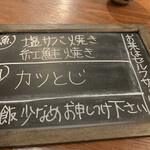 魚) 塩サバ焼き
紅鮭焼き
カツとじ
飯 少なめお申しつけ下さい
お茶はセルフ